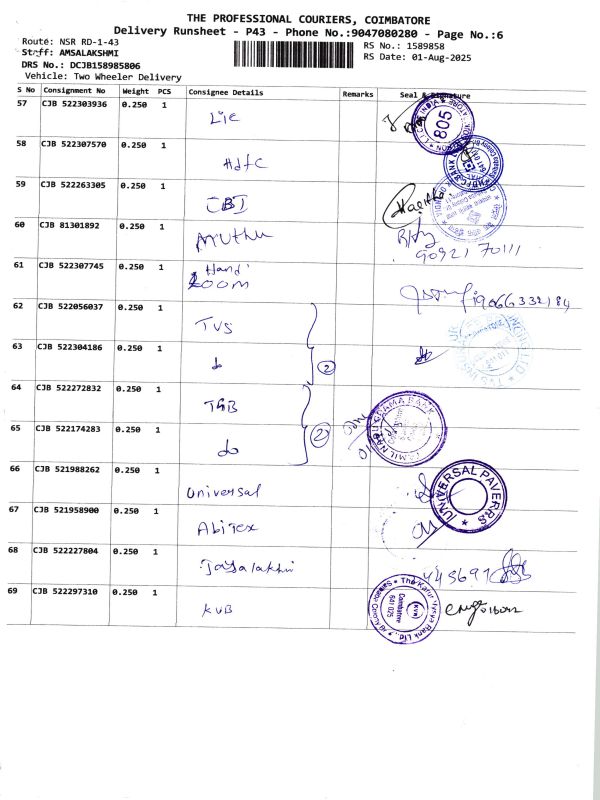 THE PROFESSIONAL COURIERS, COIMBATORE
Delivery Runsheet - P43 - Phone No.:9047080280 - Page No.:6
Route: NSR RD-1-43
RS No.: 1589858
Staff: AMSALAKSHMI
RS Date: 01-Aug-2025
DRS No.: DCJB158985806
Vehicle: Two Wheeler Delivery
S No Consignment No Weight PCS Consignee Details Remarks Seal & Signature
57 CJB 522303936 0.250 1 Lic 805
58 CJB 522307570 0.250 1 Hdfc HDFC BANK
59 CJB 522263305 0.250 1 CBI Haritha
60 CJB 81301892 0.250 1 Muthu
90921 70111
61 CJB 522307745 0.250 1 Hand
Loom 9066332184
62 CJB 522056037 0.250 1 TVS
63 CJB 522304186 0.250 1 do 2
64 CJB 522272832 0.250 1 TGB TAMIL NADU GRAMA BANK
65 CJB 522174283 0.250 1 do 2
66 CJB 521988262 0.250 1 Universal UNIVERSAL PAVERRS
67 CJB 521958900 0.250 1 Abitex
68 CJB 522227804 0.250 1 Jayalakhmi 445691
69 CJB 522297310 0.250 1 KVB The Karur Vysya Bank Ltd. KVB Coimbatore 641 025